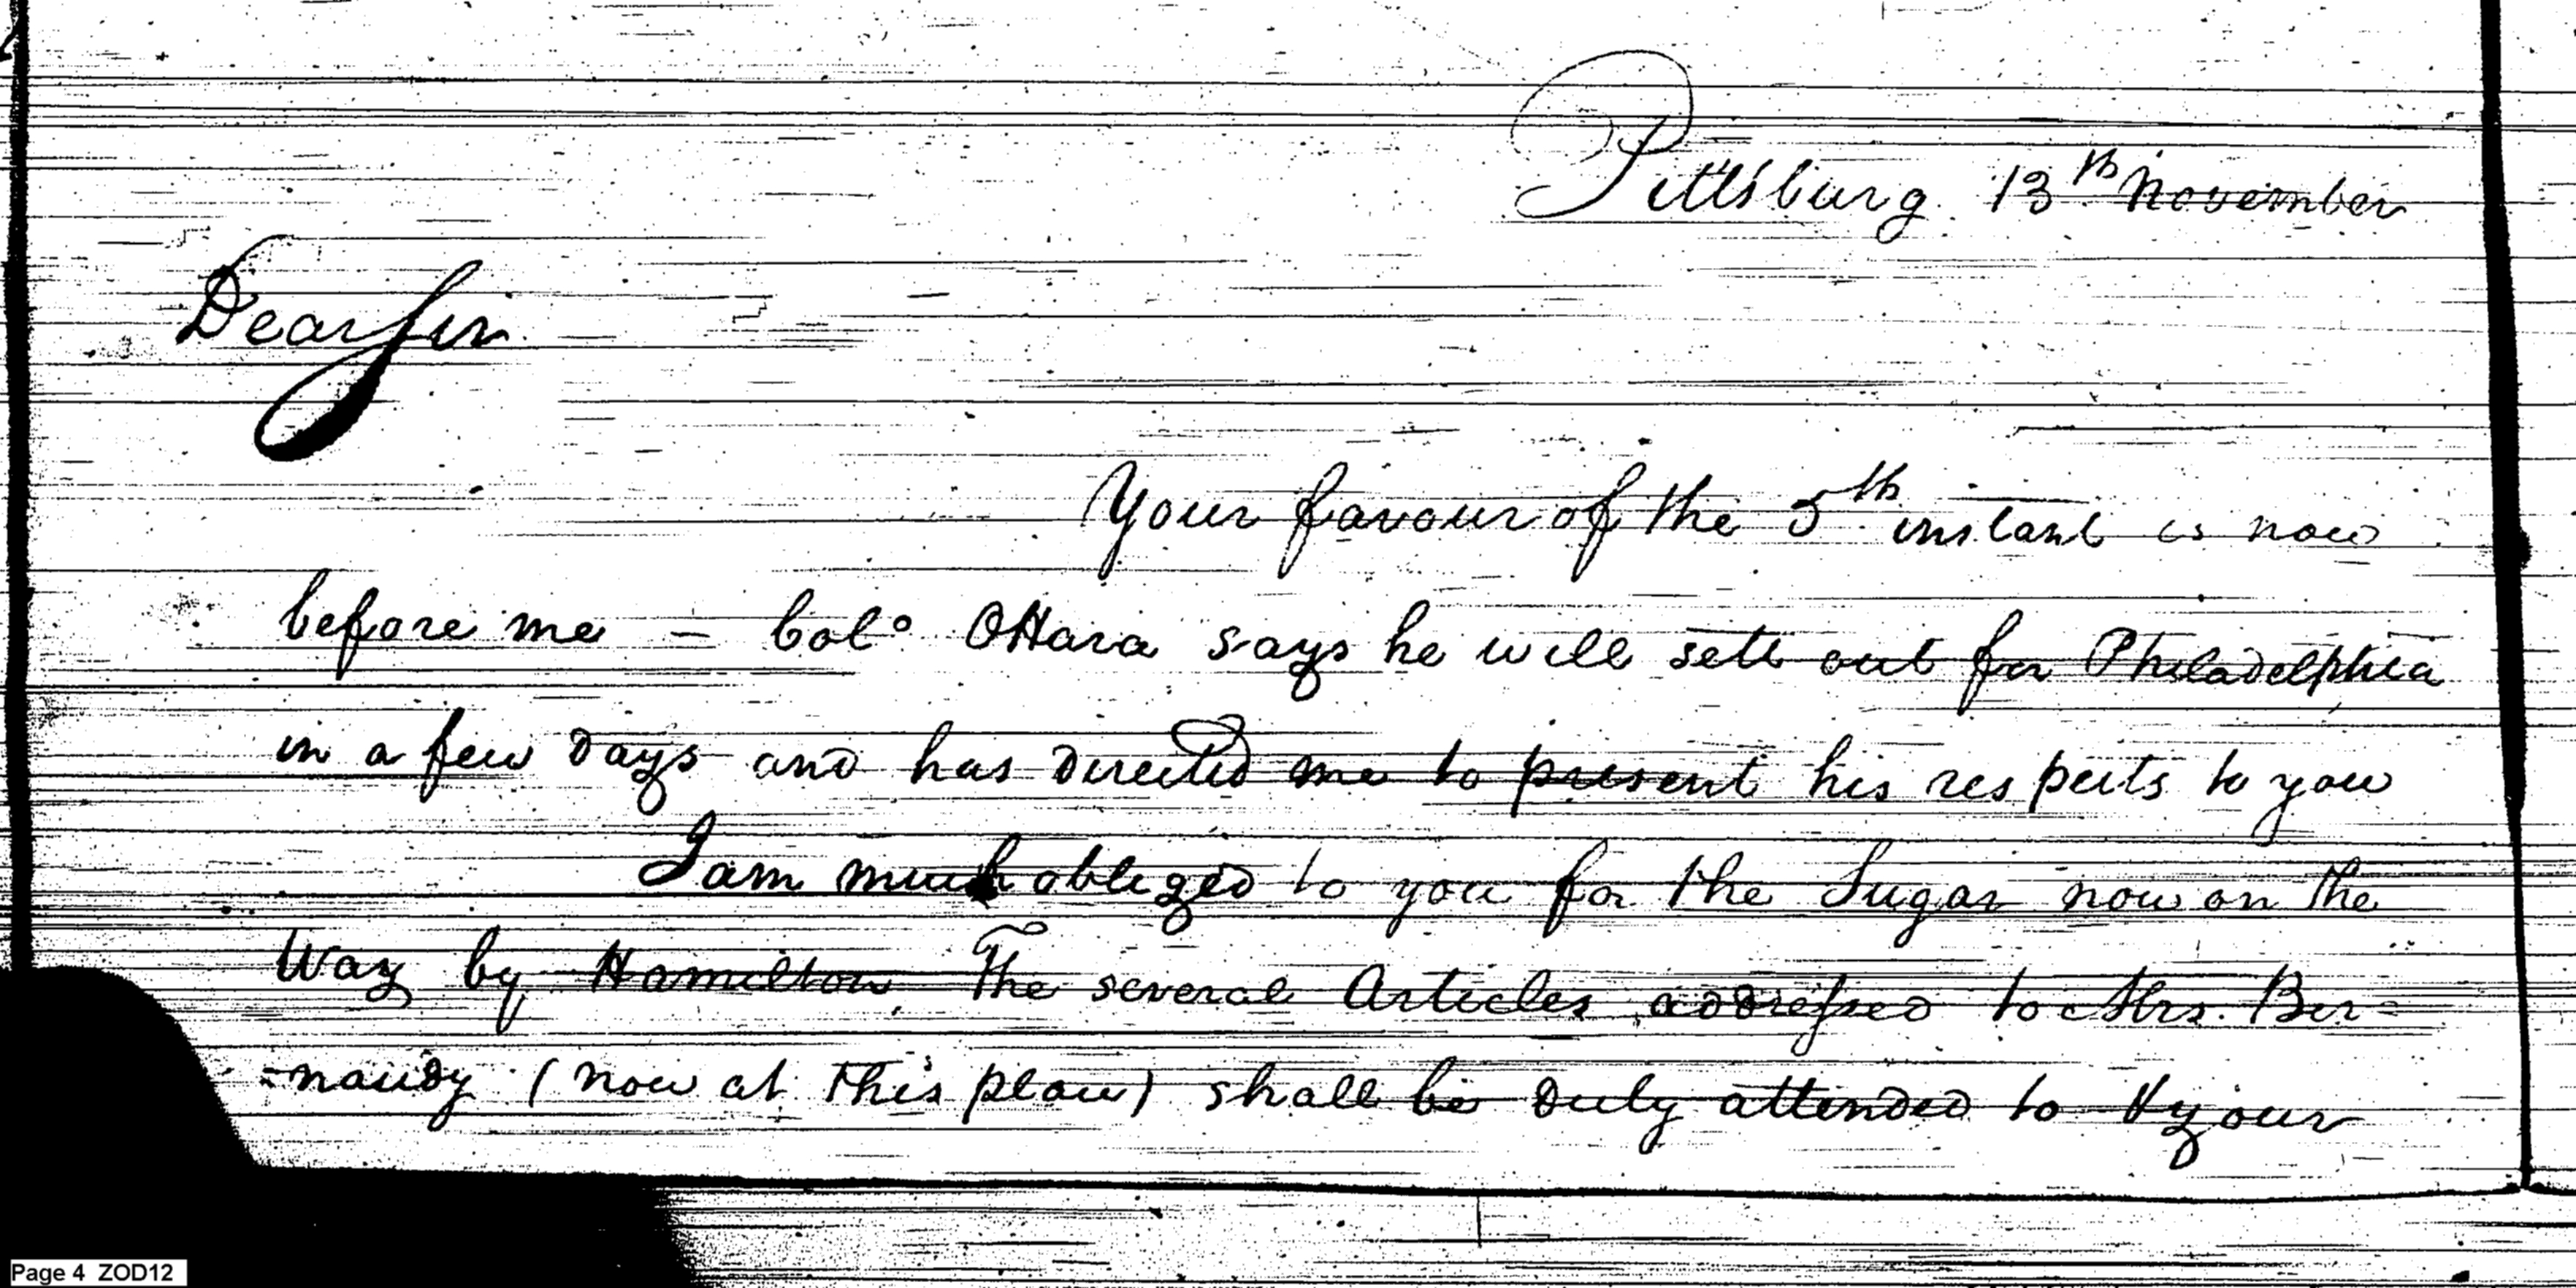 Pittsburg 13th November
Dear Sir
Your favour of the 5th instant is now
before me – Colo OHara says he will sett out for Philadelphia
in a few days and has directed me to present his respects to you
I am much obliged to you for the Sugar now on the
Way by Hamilton. The several Articles addressed to Mrs. Ber=
=naudy (now at this place) shall be duly attended to & your
Page 4 ZOD12